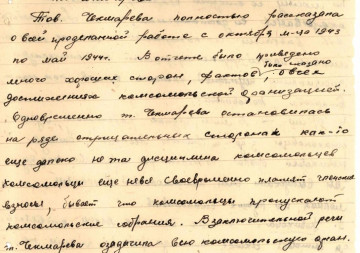 Тов. Чекмарева полностью рассказала
о всей проделанной работе с октября м-ца 1943
по май 1944г. В отчете было приведено
много хороших сторон, фактов, было сказано о всех
достижениях комсомольской организацией.
Одновременно т. Чекмарева остановилась
на ряде отрицательных сторонах как-то
еще далеко не та дисциплина комсомольцев
комсомольцы еще не все своевременно платят членские
взносы, бывает что комсомольцы пропускают
комсомольские собрания. В заключительной речи
т. Чекмарева всю комсомольскую орган.